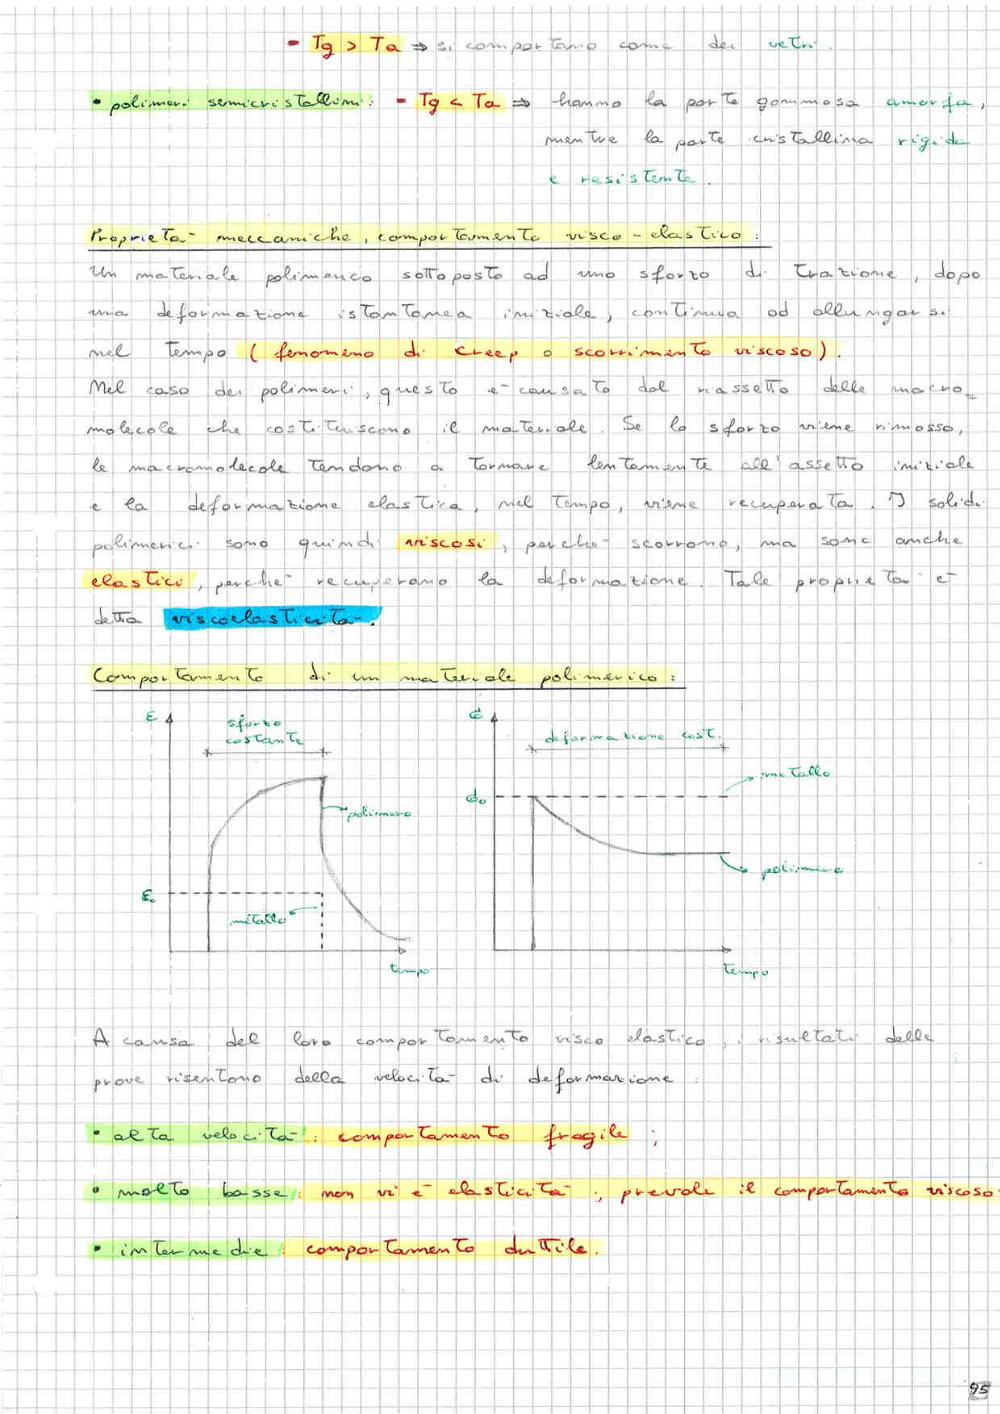 - Tg > Ta ⇒ si comportano come dei vetri.
• polimeri semicristallini: - Tg < Ta ⇒ hanno la parte gommosa amorfa,
mentre la parte cristallina rigida
e resistente.
Proprietà meccaniche, comportamento visco-elastico:
Un materiale polimerico sottoposto ad uno sforzo di trazione, dopo
una deformazione istantanea iniziale, continua ad allungarsi
nel tempo (fenomeno di creep o scorrimento viscoso).
Nel caso dei polimeri, questo è causato dal riassetto delle macro_
molecole che costituiscono il materiale. Se lo sforzo viene rimosso,
le macromolecole tendono a tornare lentamente all'assetto iniziale
e la deformazione elastica, nel tempo, viene recuperata. I solidi
polimerici sono quindi viscosi, perché scorrono, ma sono anche
elastici, perché recuperano la deformazione. Tale proprietà è
detta viscoelasticità.
Comportamento di un materiale polimerico:
ε
sforzo
costante
polimero
ε₀
metallo
tempo
σ
deformazione cost.
metallo
σ₀
polimero
tempo
A causa del loro comportamento visco elastico, i risultati delle
prove risentono della velocità di deformazione:
• alta velocità: comportamento fragile;
• molto basse: non vi è elasticità, prevale il comportamento viscoso;
• intermedie: comportamento duttile.
95